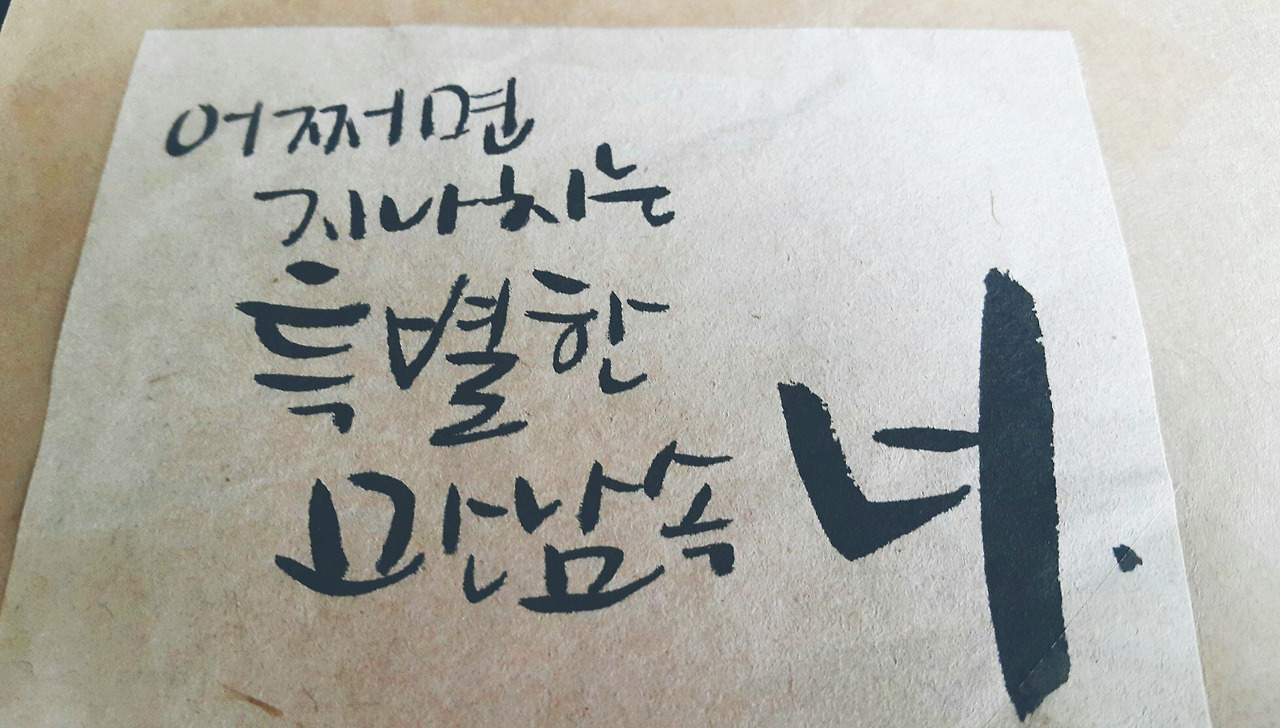 어쩌면
지나치는
특별한
만남속
너.